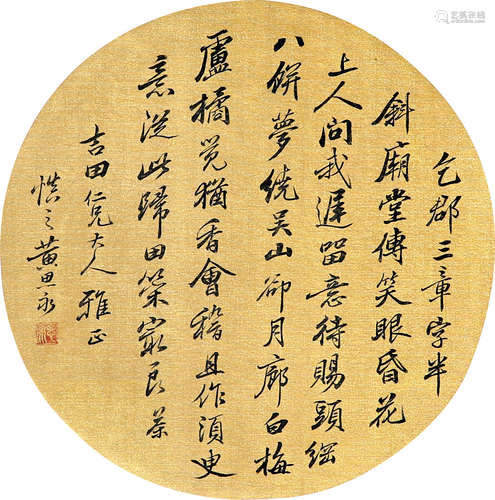 乞郡三章字半
斜廟堂傳笑眼昏花
上人問我遲留意待賜頭綱
八餅夢繞吴山卻月廊白梅
盧橘覺猶香會稽且作須臾
意從此歸田策最良 茶
吉田仁兄大人雅正
慎之黄思永